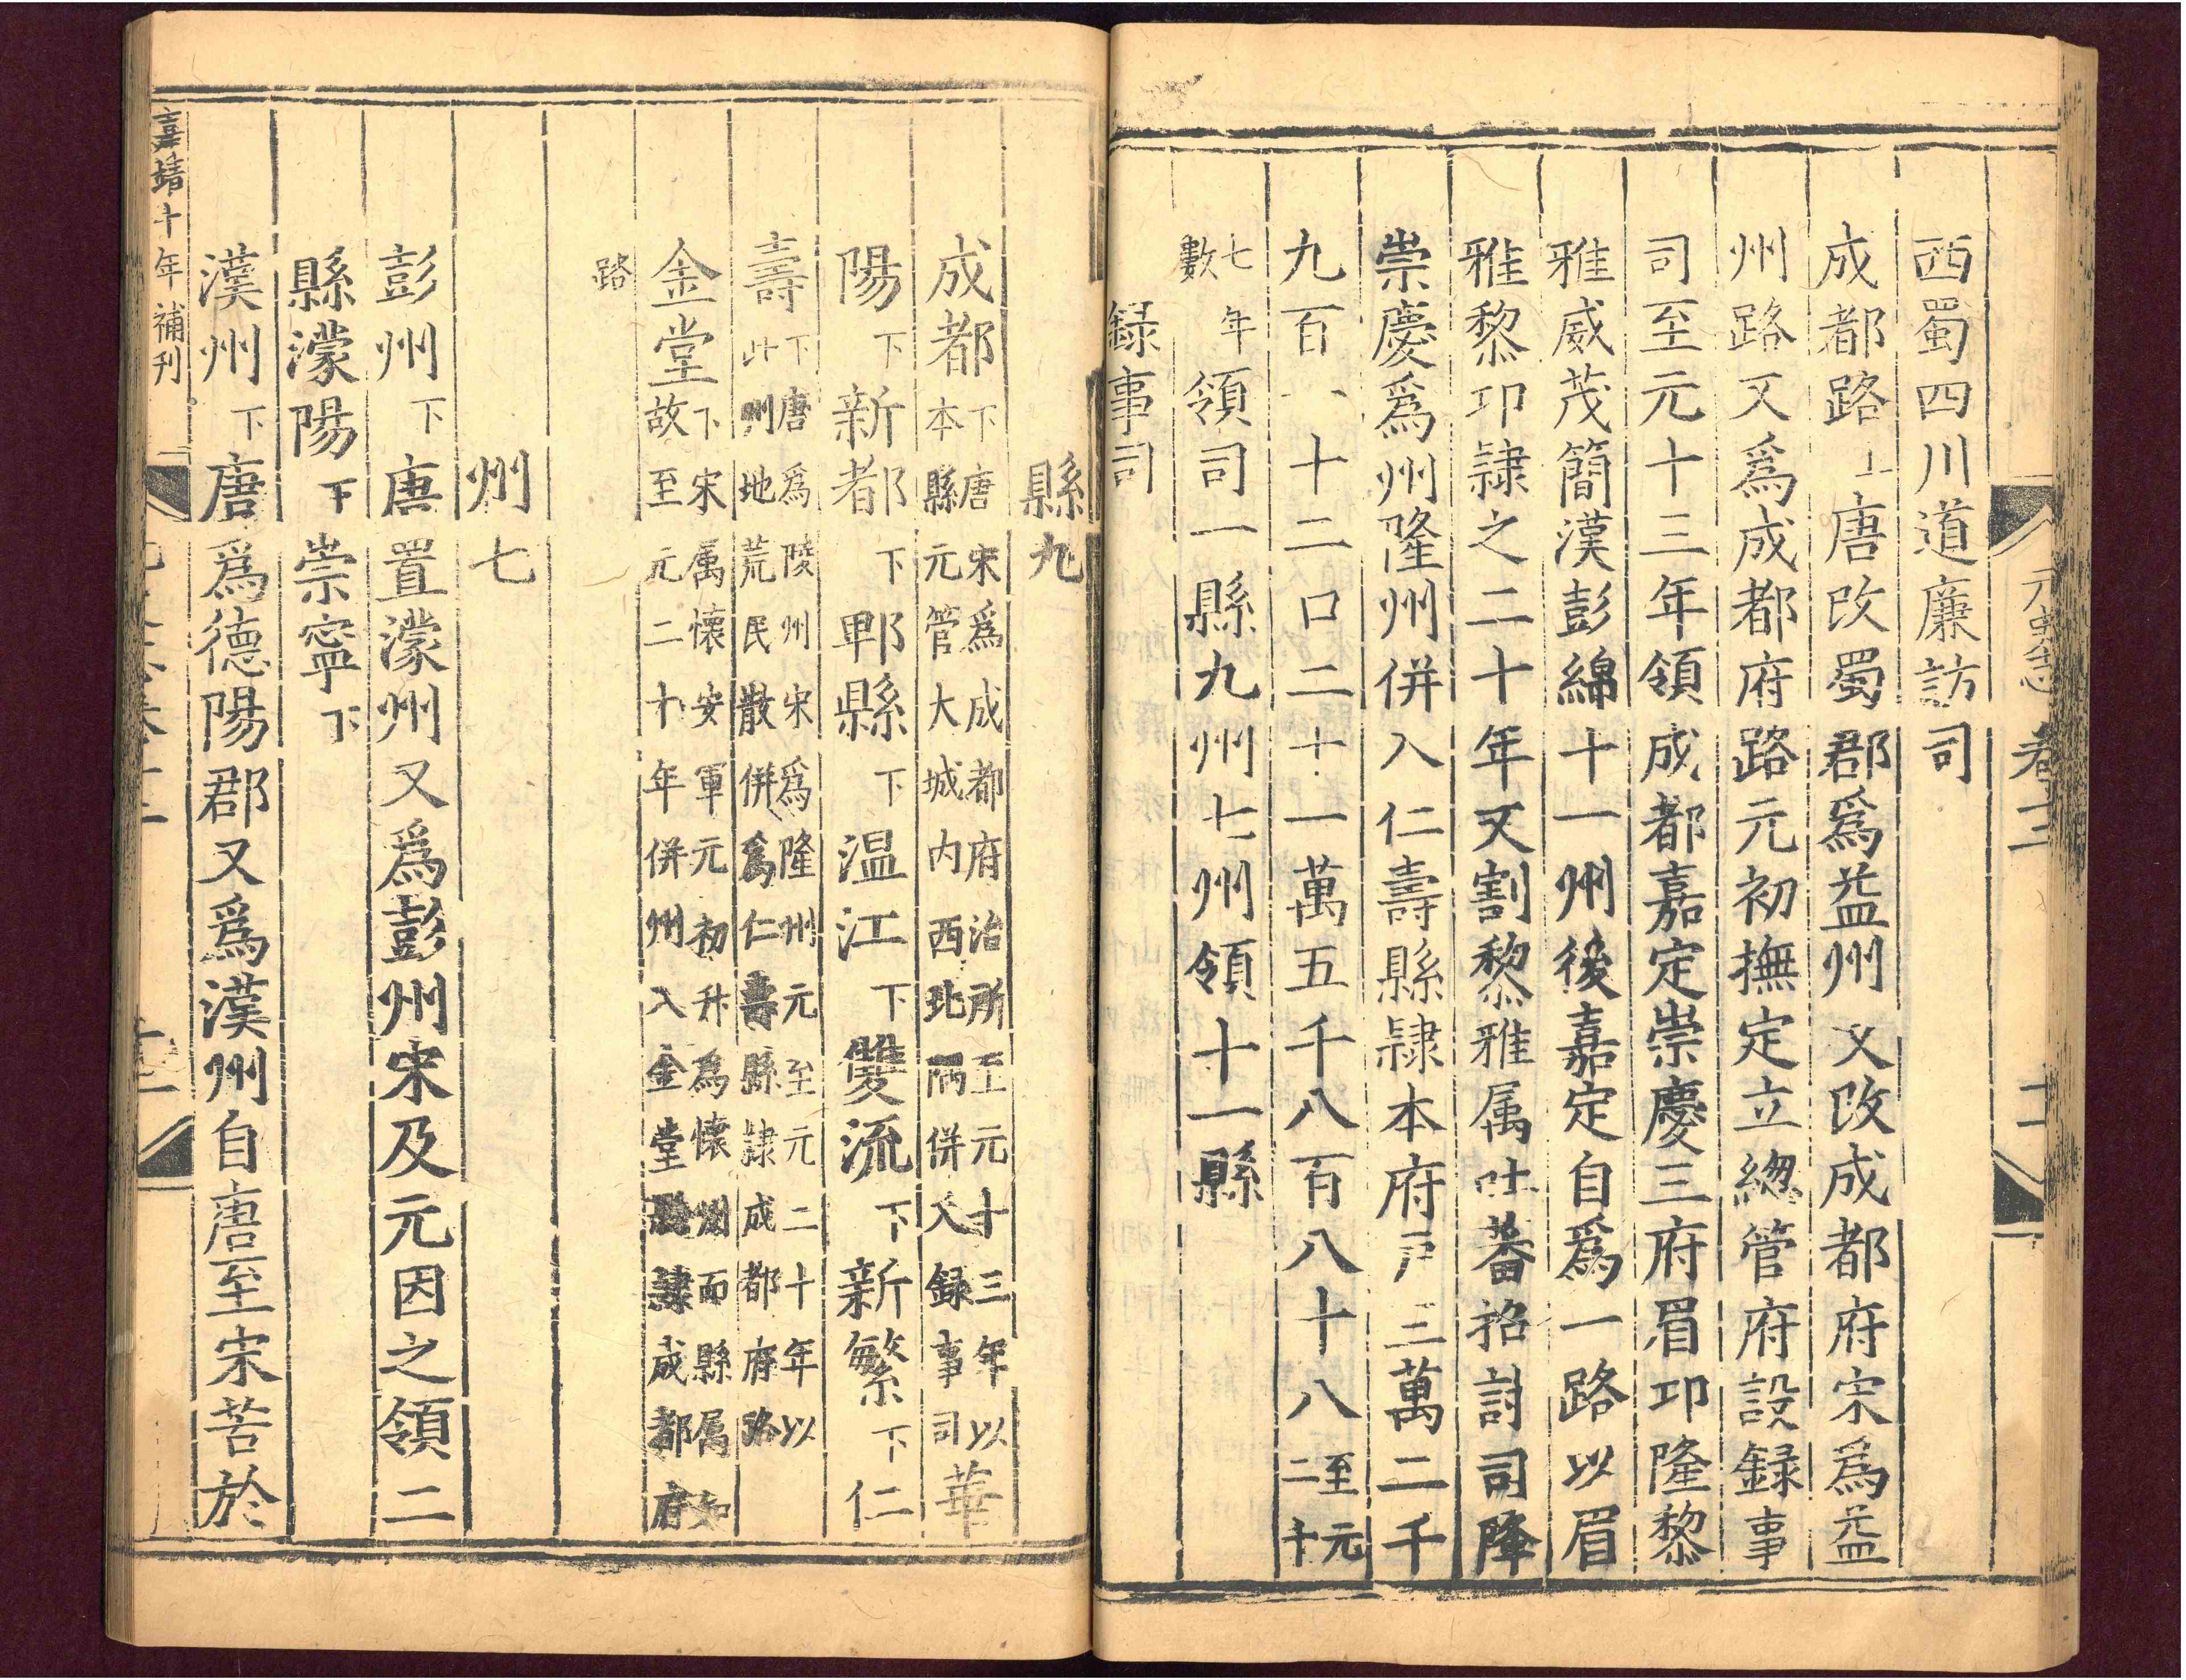 元史志 卷十二
西蜀四川道廉訪司
成都路上唐改蜀郡爲益州又改成都府宋爲益
州路又爲成都府路元初撫定立緫管府設録事
司至元十三年領成都嘉定崇慶三府眉卭隆黎
雅威茂簡漢彭綿十一州後嘉定自爲一路以眉
雅黎卭隷之二十年又割黎雅属吐蕃招討司降
崇慶爲州隆州併入仁壽縣隷本府戸三萬二千
九百一十二口二十一萬五千八百八十八至元二十
七年數領司一縣九州七州領十一縣
録事司
縣九
成都下唐宋爲成都府治所至元十三年以本縣元管大城内西北隅併入録事司華
陽下新都下郫縣下温江下雙流下新繁下仁
壽下唐爲陵州宋爲隆州元至元二十年以此州地荒民散併爲仁壽縣隷成都府路
金堂下宋属懷安軍元初升為懷州而縣属如故至元二十年併州入金堂縣隷成都府
路
州七
彭州下唐置濛州又爲彭州宋及元因之領二
縣濛陽下崇寧下
漢州下唐爲德陽郡又爲漢州自唐至宋苦於
嘉靖十年補刊